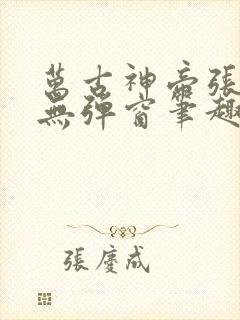 萬古神帝張
無彈窗筆趣
張慶成